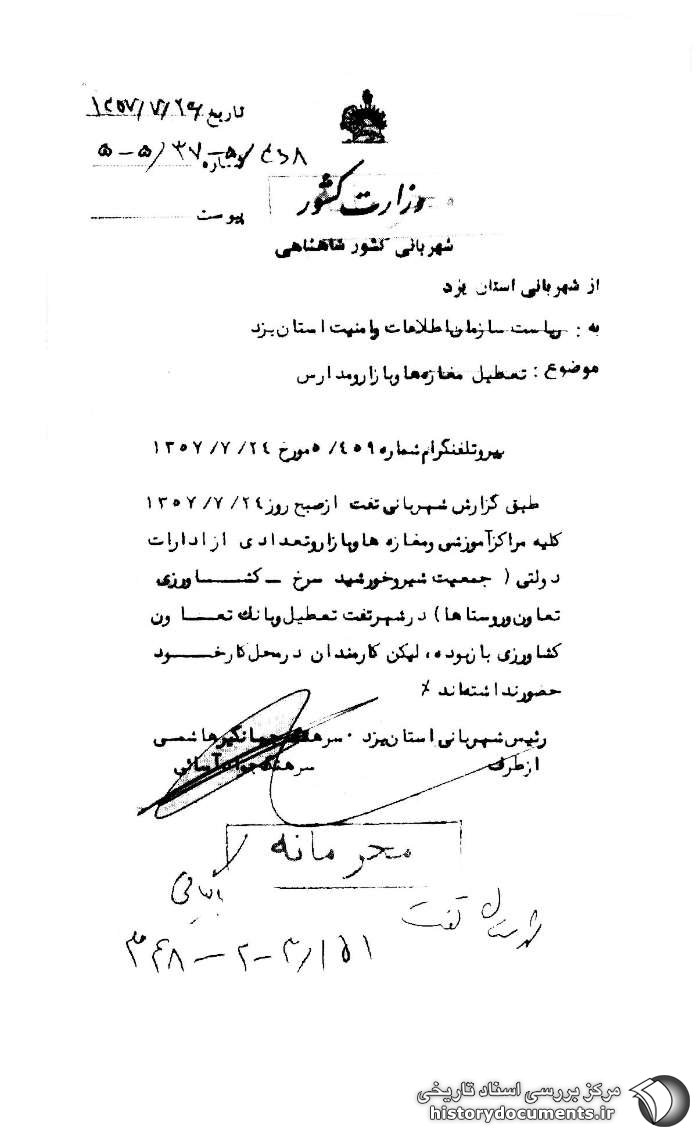 تاریخ ۱۳۵۷/۷/۲۶
شماره ۵-۵/۳۷-
پیوست
وزارت کشور
شهربانی کشور شاهنشاهی
از شهربانی استان یزد
به : ریاست سازمان اطلاعات و امنیت استان یزد
موضوع : تعطیل مغازه‌ها و بازار و مدارس
پیرو تلفنگرام شماره ۵/۴۵۹ مورخ ۱۳۵۷/۷/۲۴
طبق گزارش شهربانی تفت از صبح روز ۱۳۵۷/۷/۲۴
کلیه مراکز آموزشی و مغازه ها و بازار و تعدادی از ادارات
دولتی ( جمعیت شیر و خورشید سرخ - کشاورزی
تعاون و روستاها ) در شهر تفت تعطیل و بانك تعاون
کشاورزی باز بوده ، لیکن کارمندان در محل کار خود
حضور نداشته‌اند ٪
رئیس شهربانی استان یزد . سرهنگ جهانگیر هاشمی
از طرف سرهنگ جواد آسائی
محرمانه
بایگانی
شهرستان تفت
مرکز بررسی اسناد تاریخی
historydocuments.ir